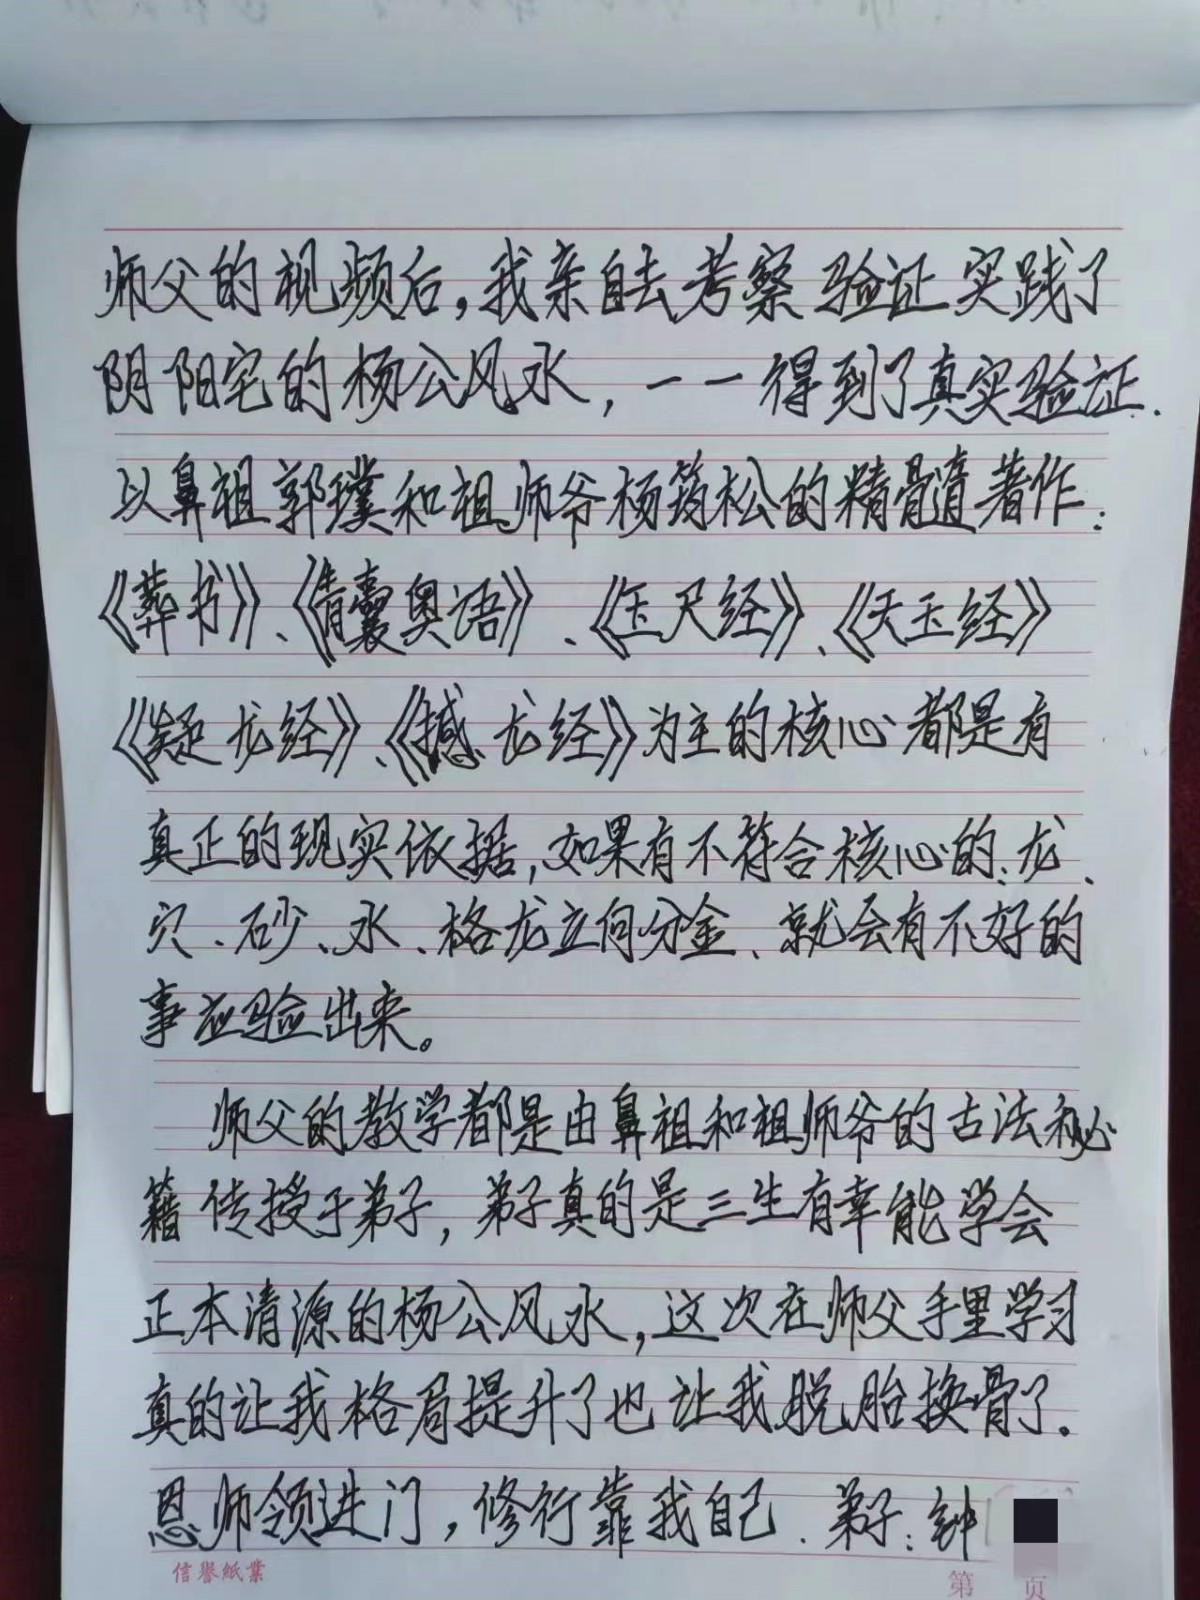 师父的视频后，我亲自去考察验证实践了
阴阳宅的杨公风水，一一得到了真实验证.
以鼻祖郭璞和祖师爷杨筠松的精髓著作:
《葬书》、《青囊奥语》、《玉尺经》、《天玉经》
《疑龙经》、《撼龙经》为主的核心都是有
真正的现实依据，如果有不符合核心的:龙、
穴、砂、水、格龙立向分金、就会有不好的
事应验出来。
师父的教学都是由鼻祖和祖师爷的古法秘
籍传授于弟子，弟子真的是三生有幸能学会
正本清源的杨公风水，这次在师父手里学习
真的让我格局提升了也让我脱胎换骨了.
恩师领进门，修行靠我自己.弟子:钟
信誉紙業
第 页